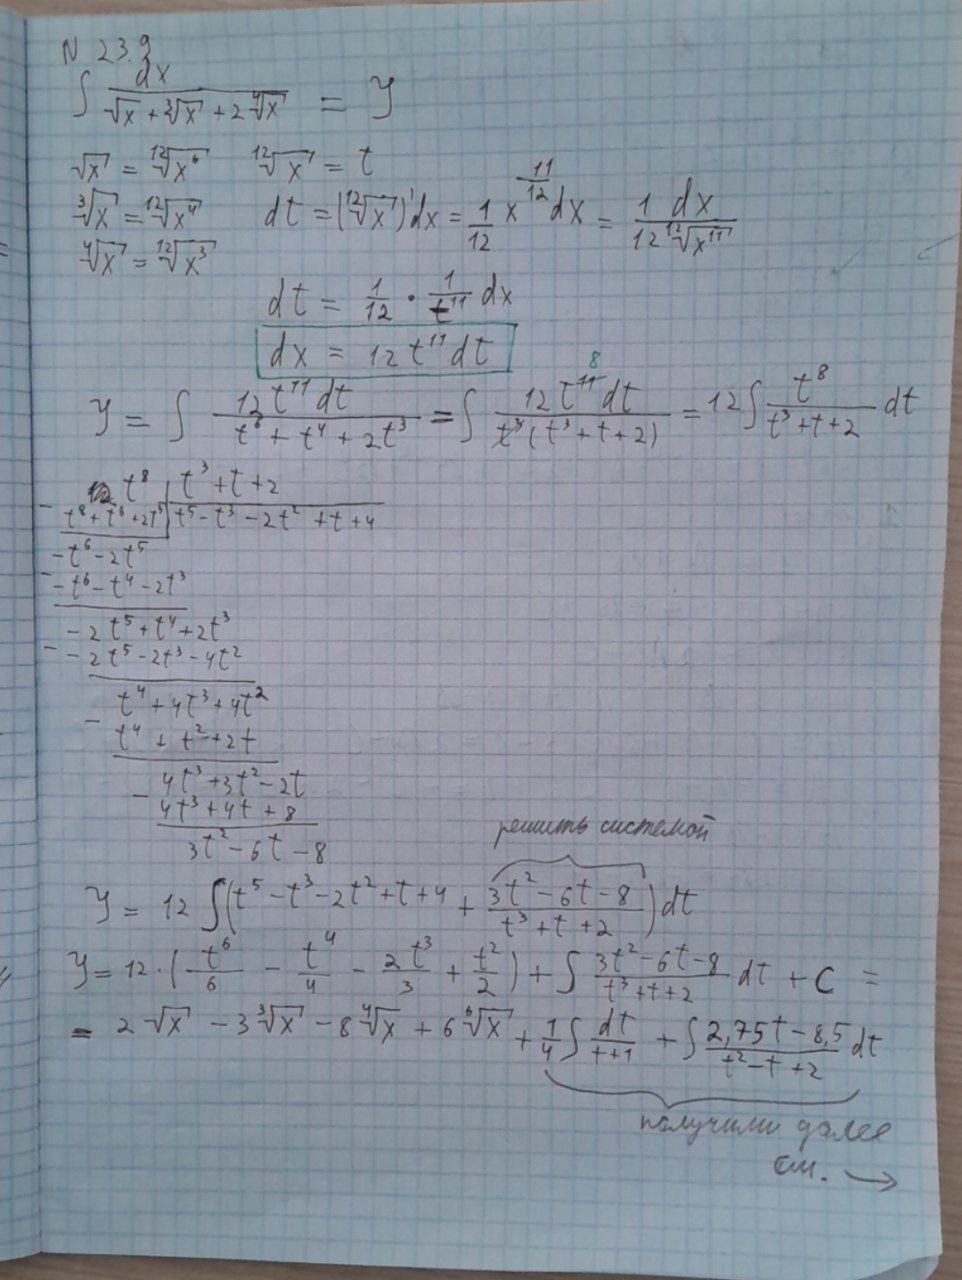 N 23.9
∫ dx / (√x + ∛x + 2 ∜x) = Y
√x = ¹²√x⁶   ¹²√x = t
∛x = ¹²√x⁴   dt = (¹²√x)' dx = 1/12 x^(-11/12) dx = 1/12 dx/¹²√x¹¹
∜x = ¹²√x³
dt = 1/12 · 1/t¹¹ dx
dx = 12 t¹¹ dt
Y = ∫ 12 t¹¹ dt / (t⁶ + t⁴ + 2t³) = ∫ 12 t¹¹ ⁸ dt / t³(t³ + t + 2) = 12 ∫ t⁸ / (t³ + t + 2) dt
t⁸ | t³ + t + 2
- t⁸ + t⁶ + 2t⁵ | t⁵ - t³ - 2t² + t + 4
- t⁶ - 2t⁵
- - t⁶ - t⁴ - 2t³
- 2t⁵ + t⁴ + 2t³
- - 2t⁵ - 2t³ - 4t²
t⁴ + 4t³ + 4t²
- t⁴ + t² + 2t
4t³ + 3t² - 2t
- 4t³ + 4t + 8
3t² - 6t - 8
решить системой
Y = 12 ∫ (t⁵ - t³ - 2t² + t + 4 + (3t² - 6t - 8)/(t³ + t + 2)) dt
Y = 12 · (t⁶/6 - t⁴/4 - 2t³/3 + t²/2) + ∫ (3t² - 6t - 8)/(t³ + t + 2) dt + C =
= 2√x - 3∛x - 8∜x + 6 ⁶√x + 1/4 ∫ dt/(t+1) + ∫ (2,75t - 8,5)/(t² - t + 2) dt
получили далее
см. →